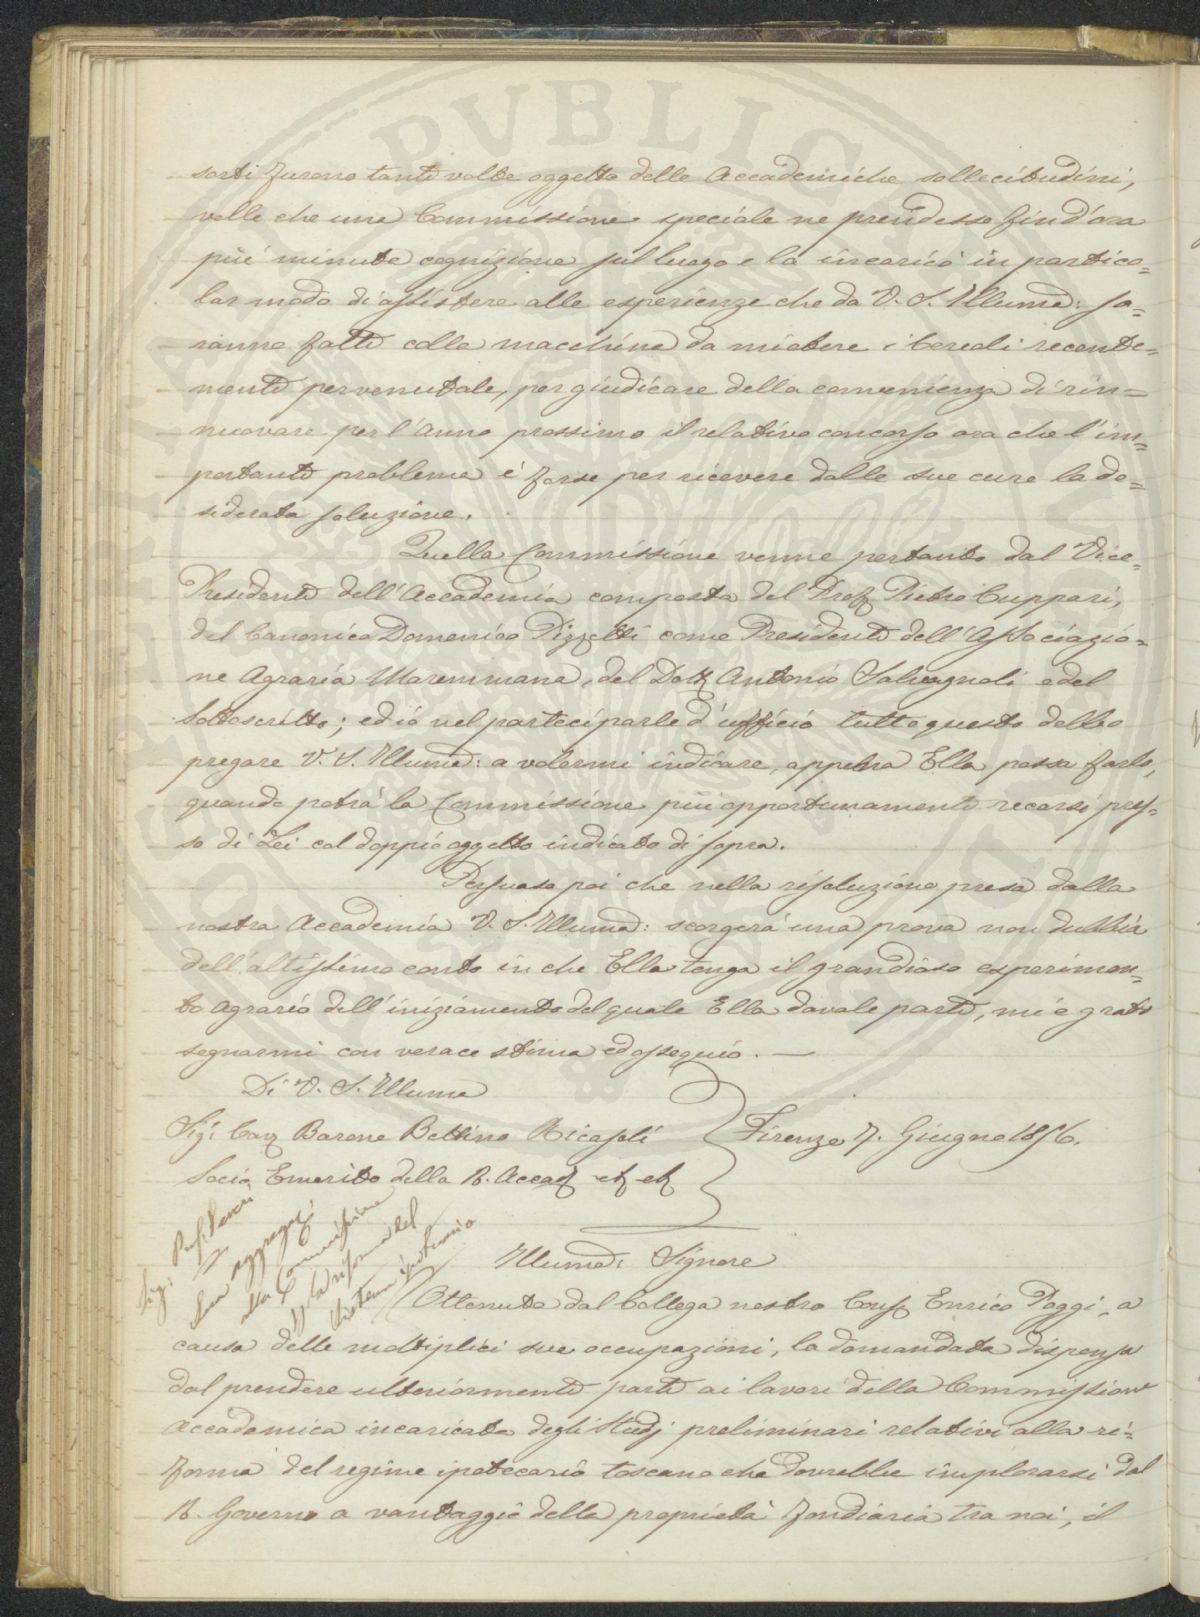 sorti furono tante volte oggetto delle Accademiche sollecitudini,
volle che una Commissione speciale ne prendesse fin d'ora
più minuta cognizione sul luogo e la incaricò in partico=
lar modo di assistere alle esperienze che da V. S. Illuma: sa=
ranno fatte colla macchina da mietere i cereali recente=
mente pervenutale, per giudicare della convenienza di rin=
nuovare per l'anno prossimo il relativo concorso ora che l'im=
portante problema è forse per ricevere dalle sue cure la de=
siderata soluzione.
Quella Commissione venne pertanto dal Vice=
Presidente dell'Accademia composta del Prof. Pietro Cuppari,
del Canonico Domenico Pizzetti come Presidente dell'Associazio=
ne Agraria Maremmana, del Dott. Antonio Salvagnoli e del
Sottoscritto; ed io nel parteciparle d'ufficio tutto questo debbo
pregare V. S. Illuma: a volermi indicare, appena Ella possa farlo,
quando potrà la Commissione più opportunamente recarsi pres=
so di Lei col doppio oggetto indicato di sopra.
Persuaso poi che nella risoluzione presa dalla
nostra Accademia V. S. Illuma: scorgerà una prova non dubbia
dell'altissimo conto in che Ella tenga il grandioso esperimen=
to agrario dell'iniziamento del quale Ella davale parte, mi è grato
segnarmi con verace stima ed ossequio. —
Di V. S. Illuma
Sigr Cav Barone Bettino Ricasoli
Firenze 7. Giugno 1856.
Socio Emerito della R. Accad etc etc
Sig:
Prof:
Sua aggregaz:
alla Commissione
p la riforma del
sistema ipotecario
Illuma: Signore
Ottenuta dal Collega nostro Cons Enrico Poggi, a
causa delle moltiplici sue occupazioni, la domandata dispensa
dal prendere ulteriormente parte ai lavori della Commissione
Accademica incaricata degli Studj preliminari relativi alla ri=
forma del regime ipotecario toscano che dovrebbe implorarsi dal
R. Governo a vantaggio della proprietà fondiaria tra noi, il
PVBLIC